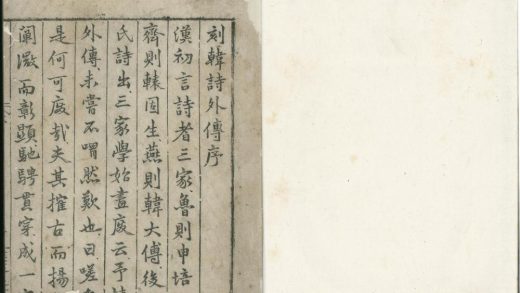 刻韓詩外傳序
漢初言詩者三家魯則申培
齊則轅固生燕則韓大傅後
氏詩出三家學始盡廢云予
外傳未嘗不喟然歎也曰嗟
是何可廢哉夫其摧古而揚
闡微而彰顯馳騁貫穿成一